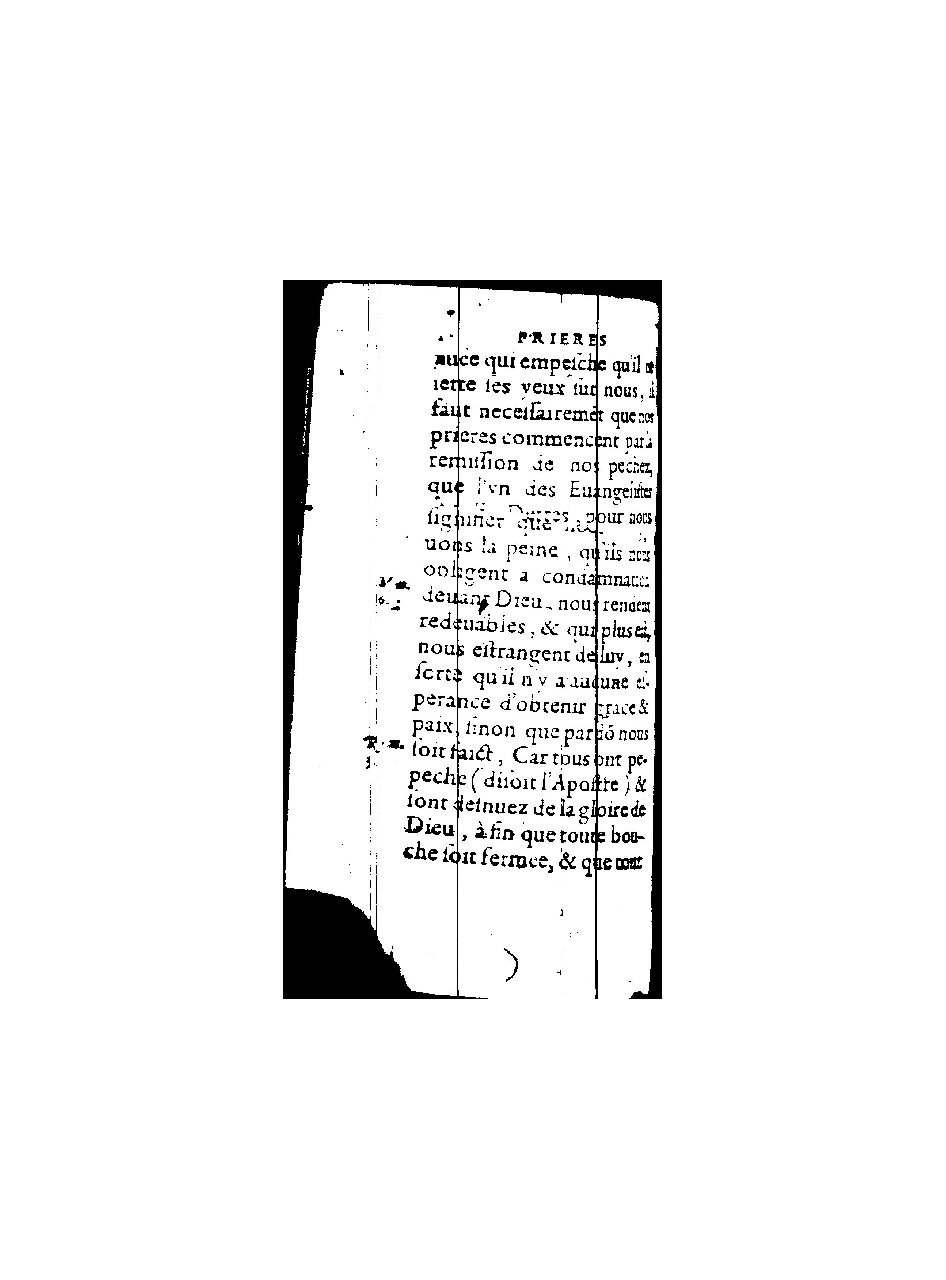 PRIERES
nuée qui empesche qu'il ne
iette ses yeux sur nous, il
faut necessairemēt que nos
prieres commencent par la
remission de nos pechez,
que l'vn des Euangelistes
pour nous
signifier que
uons la peine, qu'ils nous
obligent a condamnation
deuant Dieu, nous rendent
redeuables, & qui plus est,
nous estrangent de luy, en
sorte qu'il n'y a aucune es-
perance d'obtenir grace &
paix, sinon que pardō nous
soit faict, Car tous ont pe-
peché (disoit l'Apostre) &
sont destituez de la gloire de
Dieu, à fin que toute bou-
che soit fermee, & que tout